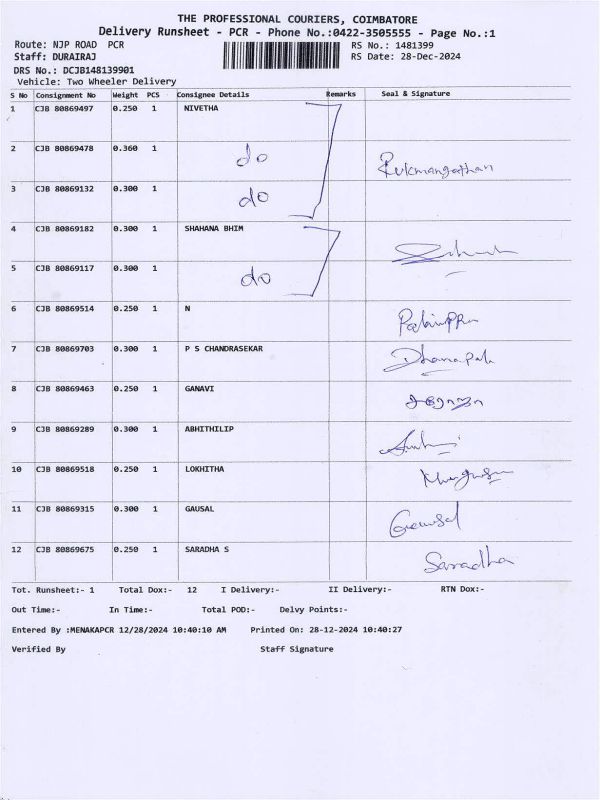 THE PROFESSIONAL COURIERS, COIMBATORE
Delivery Runsheet - PCR - Phone No.:0422-3505555 - Page No.:1
Route: NJP ROAD PCR RS No.: 1481399
Staff: DURAIRAJ RS Date: 28-Dec-2024
DRS No.: DCJB148139901
Vehicle: Two Wheeler Delivery
S No Consignment No Weight PCS Consignee Details Remarks Seal & Signature
1 CJB 80869497 0.250 1 NIVETHA
2 CJB 80869478 0.360 1 do Rukmangathan
3 CJB 80869132 0.300 1 do
4 CJB 80869182 0.300 1 SHAHANA BHIM
5 CJB 80869117 0.300 1 do
6 CJB 80869514 0.250 1 N
7 CJB 80869703 0.300 1 P S CHANDRASEKAR Dhanapal
8 CJB 80869463 0.250 1 GANAVI
9 CJB 80869289 0.300 1 ABHITHILIP
10 CJB 80869518 0.250 1 LOKHITHA
11 CJB 80869315 0.300 1 GAUSAL Gausal
12 CJB 80869675 0.250 1 SARADHA S Saradha
Tot. Runsheet:- 1 Total Dox:- 12 I Delivery:- II Delivery:- RTN Dox:-
Out Time:- In Time:- Total POD:- Delvy Points:-
Entered By :MENAKAPCR 12/28/2024 10:40:10 AM Printed On: 28-12-2024 10:40:27
Verified By Staff Signature